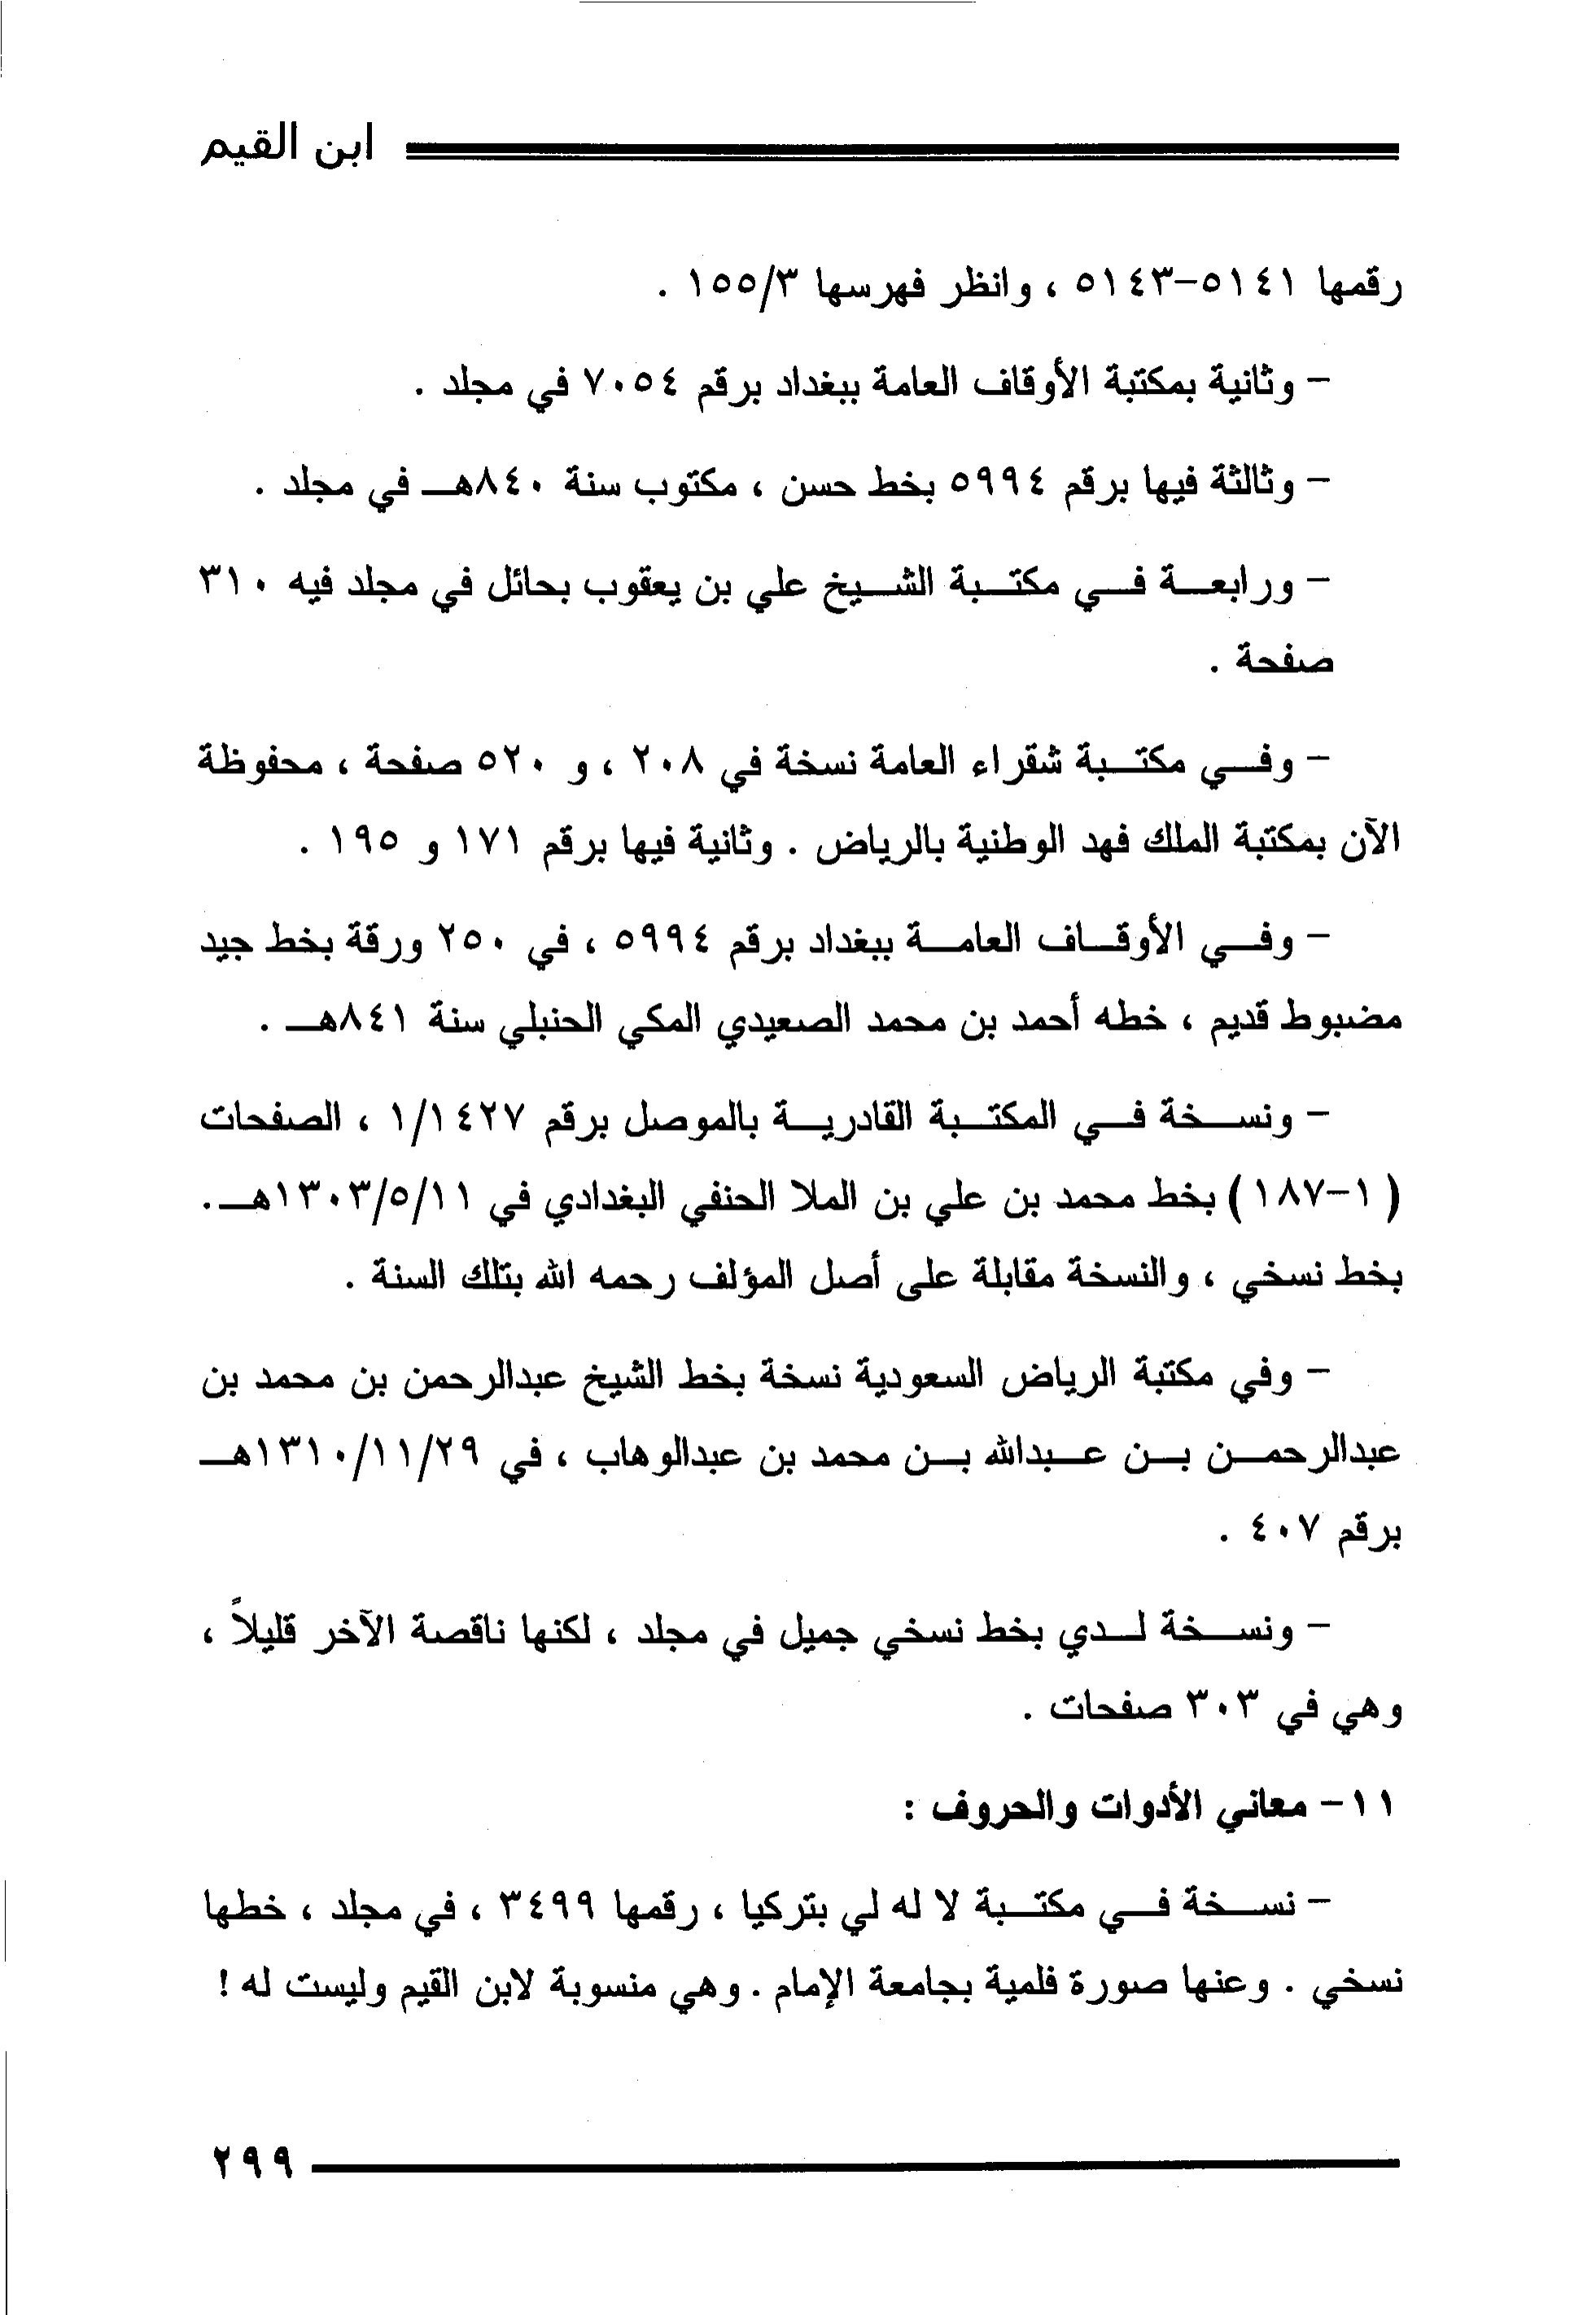 ابن القيم
رقمها ٥١٤١-٥١٤٣ ، وانظر فهرسها ١٥٥/٣ .
- وثانية بمكتبة الأوقاف العامة ببغداد برقم ٧٠٥٤ في مجلد .
- وثالثة فيها برقم ٥٩٩٤ بخط حسن ، مكتوب سنة ٨٤٠هـ في مجلد .
- ورابعة في مكتبة الشيخ علي بن يعقوب بحائل في مجلد فيه ٣١٠
صفحة .
- وفي مكتبة شقراء العامة نسخة في ٢٠٨ ، و ٥٢٠ صفحة ، محفوظة
الآن بمكتبة الملك فهد الوطنية بالرياض . وثانية فيها برقم ١٧١ و ١٩٥ .
- وفي الأوقاف العامة ببغداد برقم ٥٩٩٤ ، في ٢٥٠ ورقة بخط جيد
مضبوط قديم ، خطه أحمد بن محمد الصعيدي المكي الحنبلي سنة ٨٤١هـ .
- ونسخة في المكتبة القادرية بالموصل برقم ١/١٤٢٧ ، الصفحات
( ١-١٨٧) بخط محمد بن علي بن الملا الحنفي البغدادي في ١٣٠٣/٥/١١هـ .
بخط نسخي ، والنسخة مقابلة على أصل المؤلف رحمه الله بتلك السنة .
- وفي مكتبة الرياض السعودية نسخة بخط الشيخ عبدالرحمن بن محمد بن
عبدالرحمن بن عبدالله بن محمد بن عبدالوهاب ، في ١٣١٠/١١/٢٩هـ
برقم ٤٠٧ .
- ونسخة لدي بخط نسخي جميل في مجلد ، لكنها ناقصة الآخر قليلاً ،
وهي في ٣٠٣ صفحات .
١١- معاني الأدوات والحروف :
- نسخة في مكتبة لا له لي بتركيا ، رقمها ٣٤٩٩ ، في مجلد ، خطها
نسخي . وعنها صورة فلمية بجامعة الإمام . وهي منسوبة لابن القيم وليست له !
٢٩٩